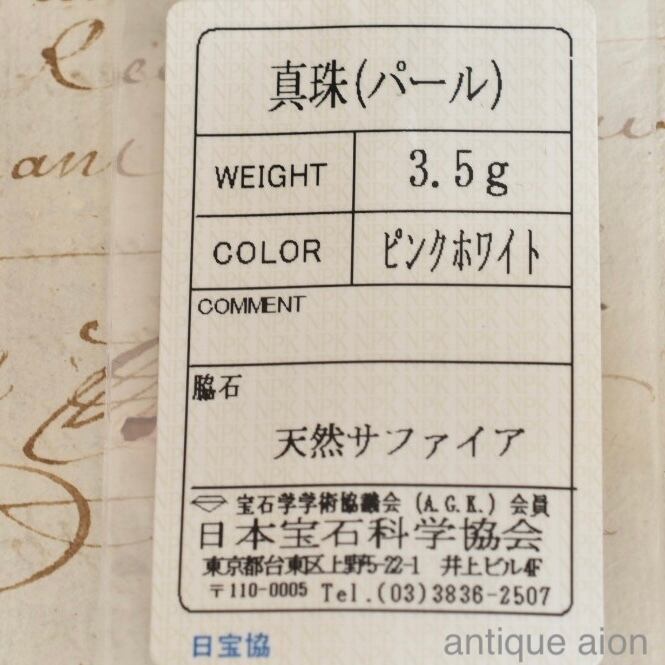 真珠(パール)
WEIGHT 3.5g
COLOR ピンクホワイト
COMMENT
脇石
天然サファイア
宝石学学術協議会 (A.G.K.) 会員
日本宝石科学協会
東京都台東区上野5-22-1 井上ビル4F
〒110-0005 Tel.(03)3836-2507
日宝協
antique aion